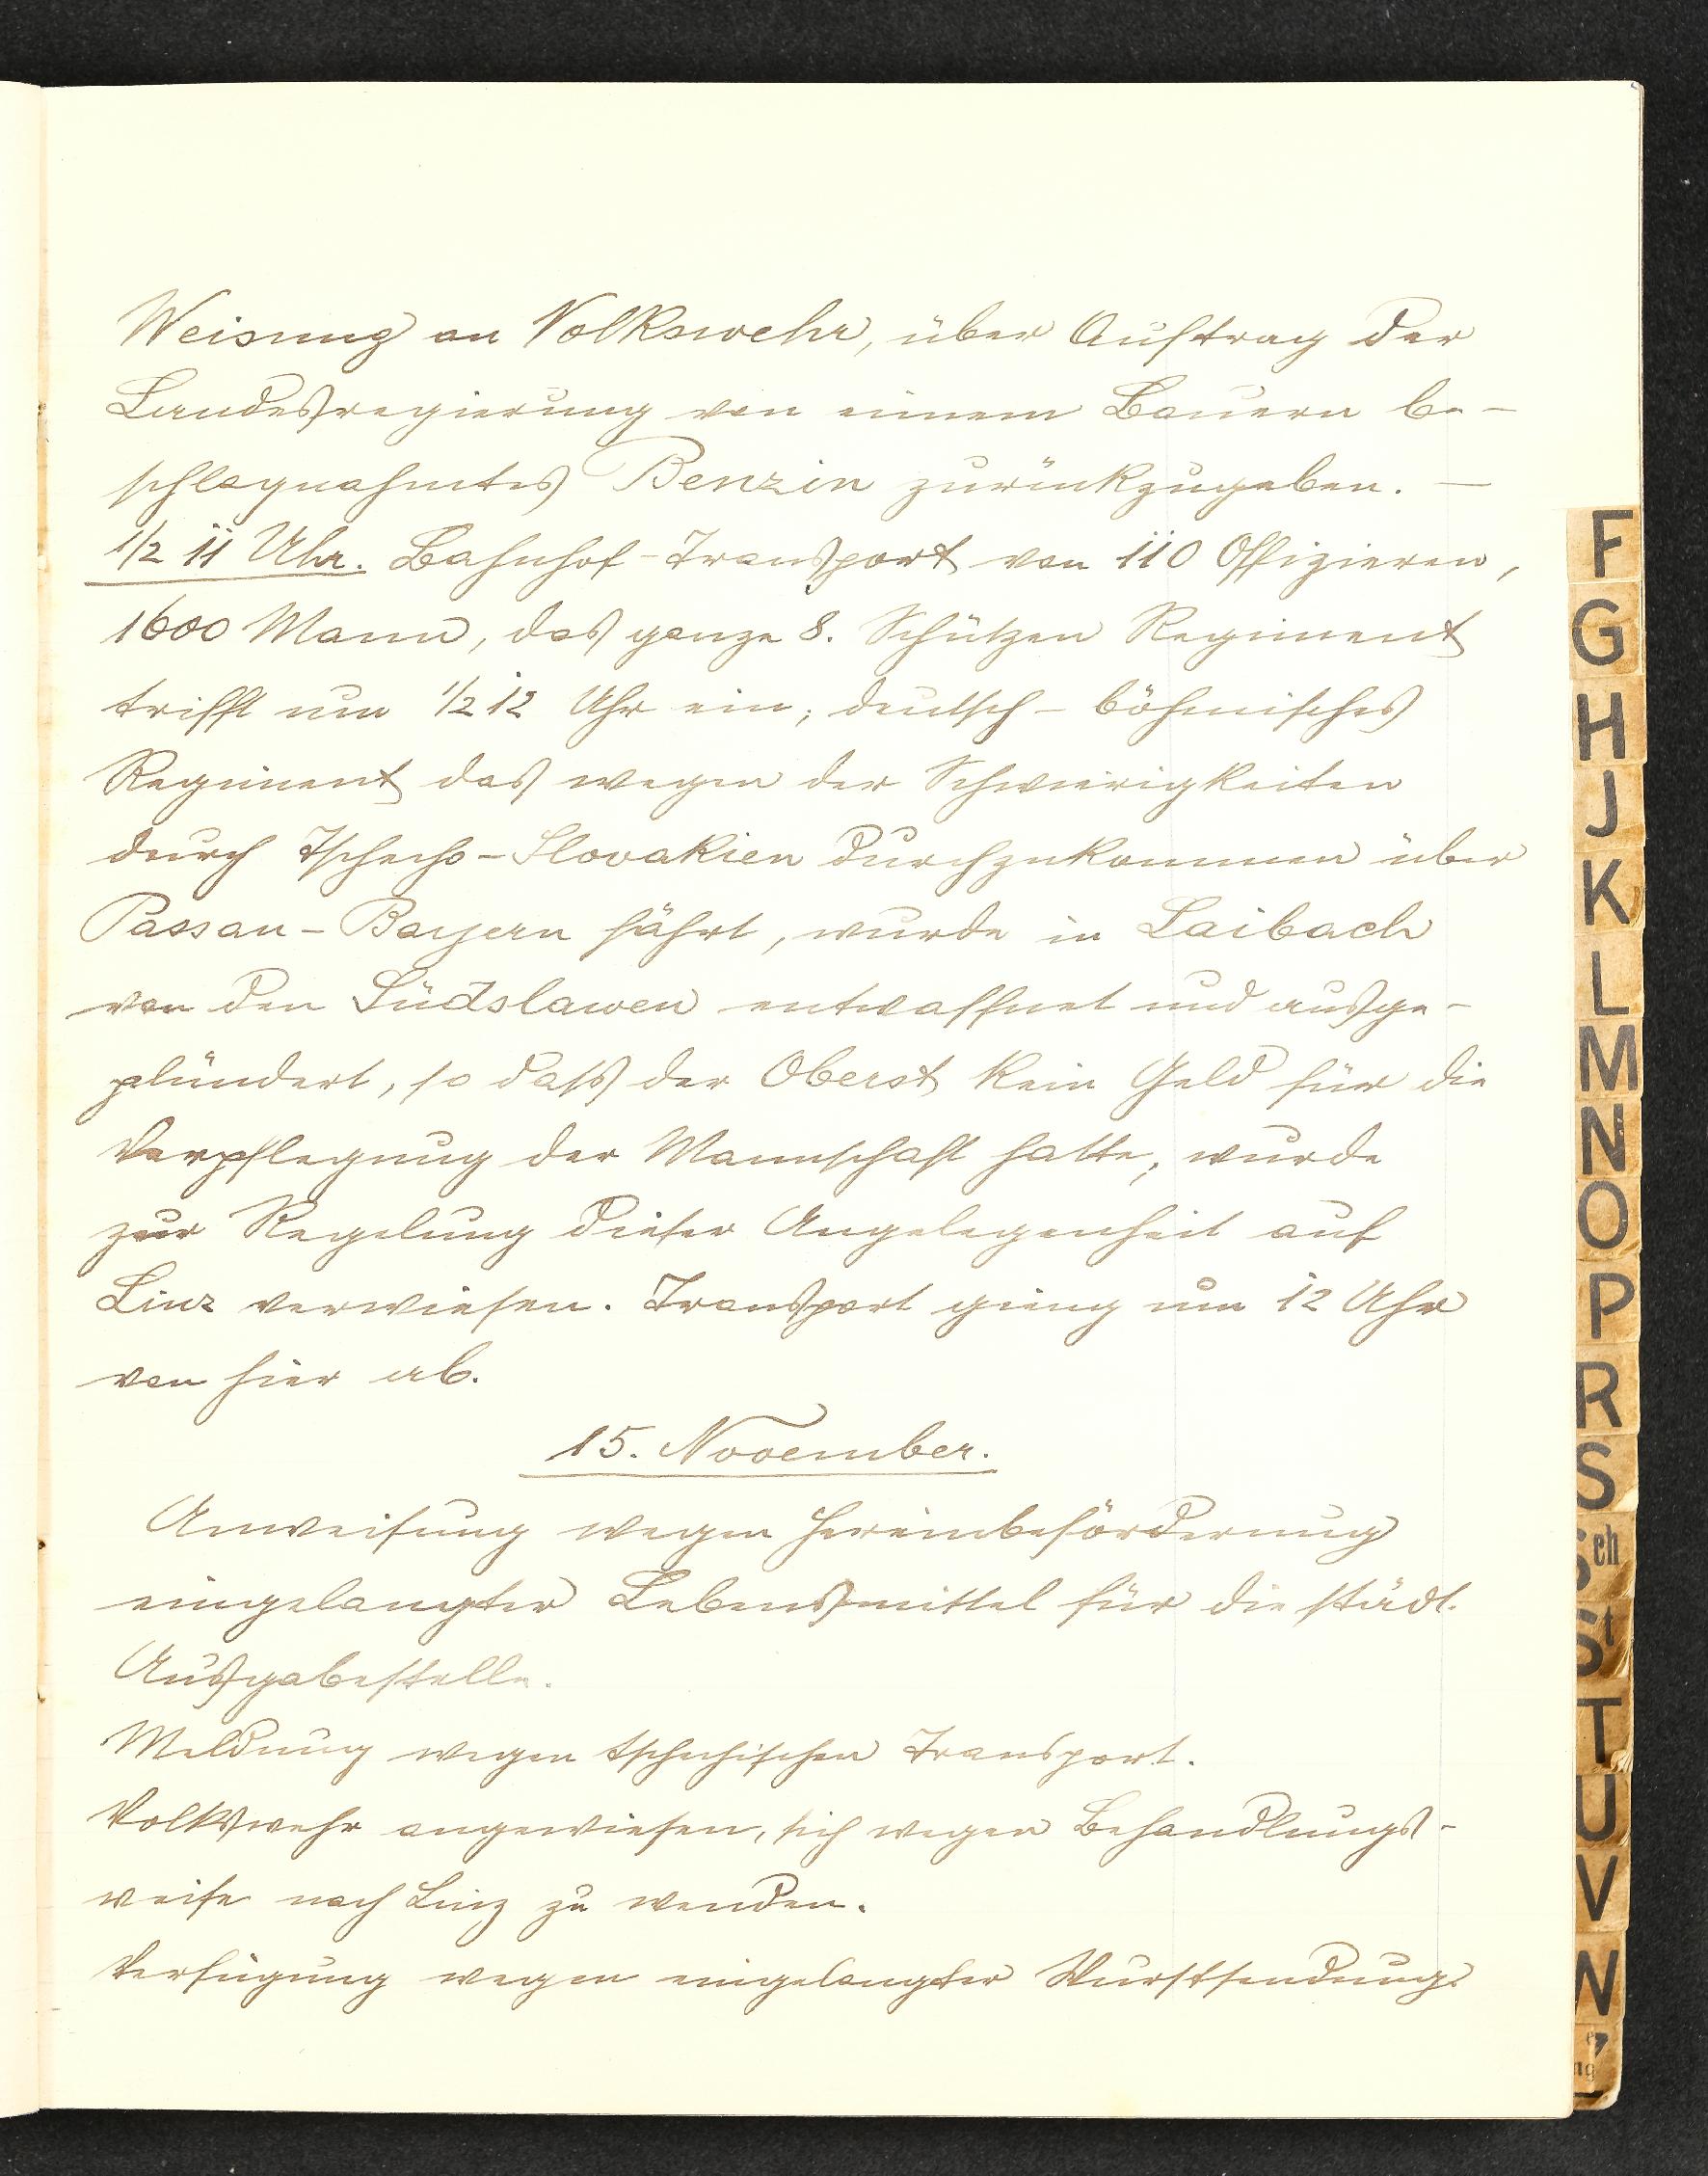 Weisung an Volkswehr, über Auftrag der
Landesregierung von einem Bauern be-
schlagnahmtes Benzin zurückzugeben. —
1/2 11 Uhr. Bahnhof-Transport von 110 Offizieren,
1600 Mann, das ganze 8. Schützen Regiment
trifft um 1/2 12 Uhr ein; deutsch-böhmisches
Regiment das wegen der Schwierigkeiten
durch Tschecho-Slovakien durchzukommen über
Passau-Bayern fährt, wurde in Laibach
von den Südslawen entwaffnet und ausge-
plündert, so dass der Oberst kein Geld für die
Verpflegung der Mannschaft hatte, wurde
zur Regelung dieser Angelegenheit auf
Linz verwiesen. Transport gieng um 12 Uhr
von hier ab.
15. November.
Anweisung wegen Hereinbeförderung
eingelangter Lebensmittel für die städt.
Ausgabestelle.
Meldung wegen tschechischen Transport.
Volkswehr angewiesen, sich wegen Behandlungs-
weise nach Linz zu wenden.
Verfügung wegen eingelangter Wurstsendung.
F
G
H
J
K
L
M
N
O
P
R
S
Sch
St
T
U
V
W